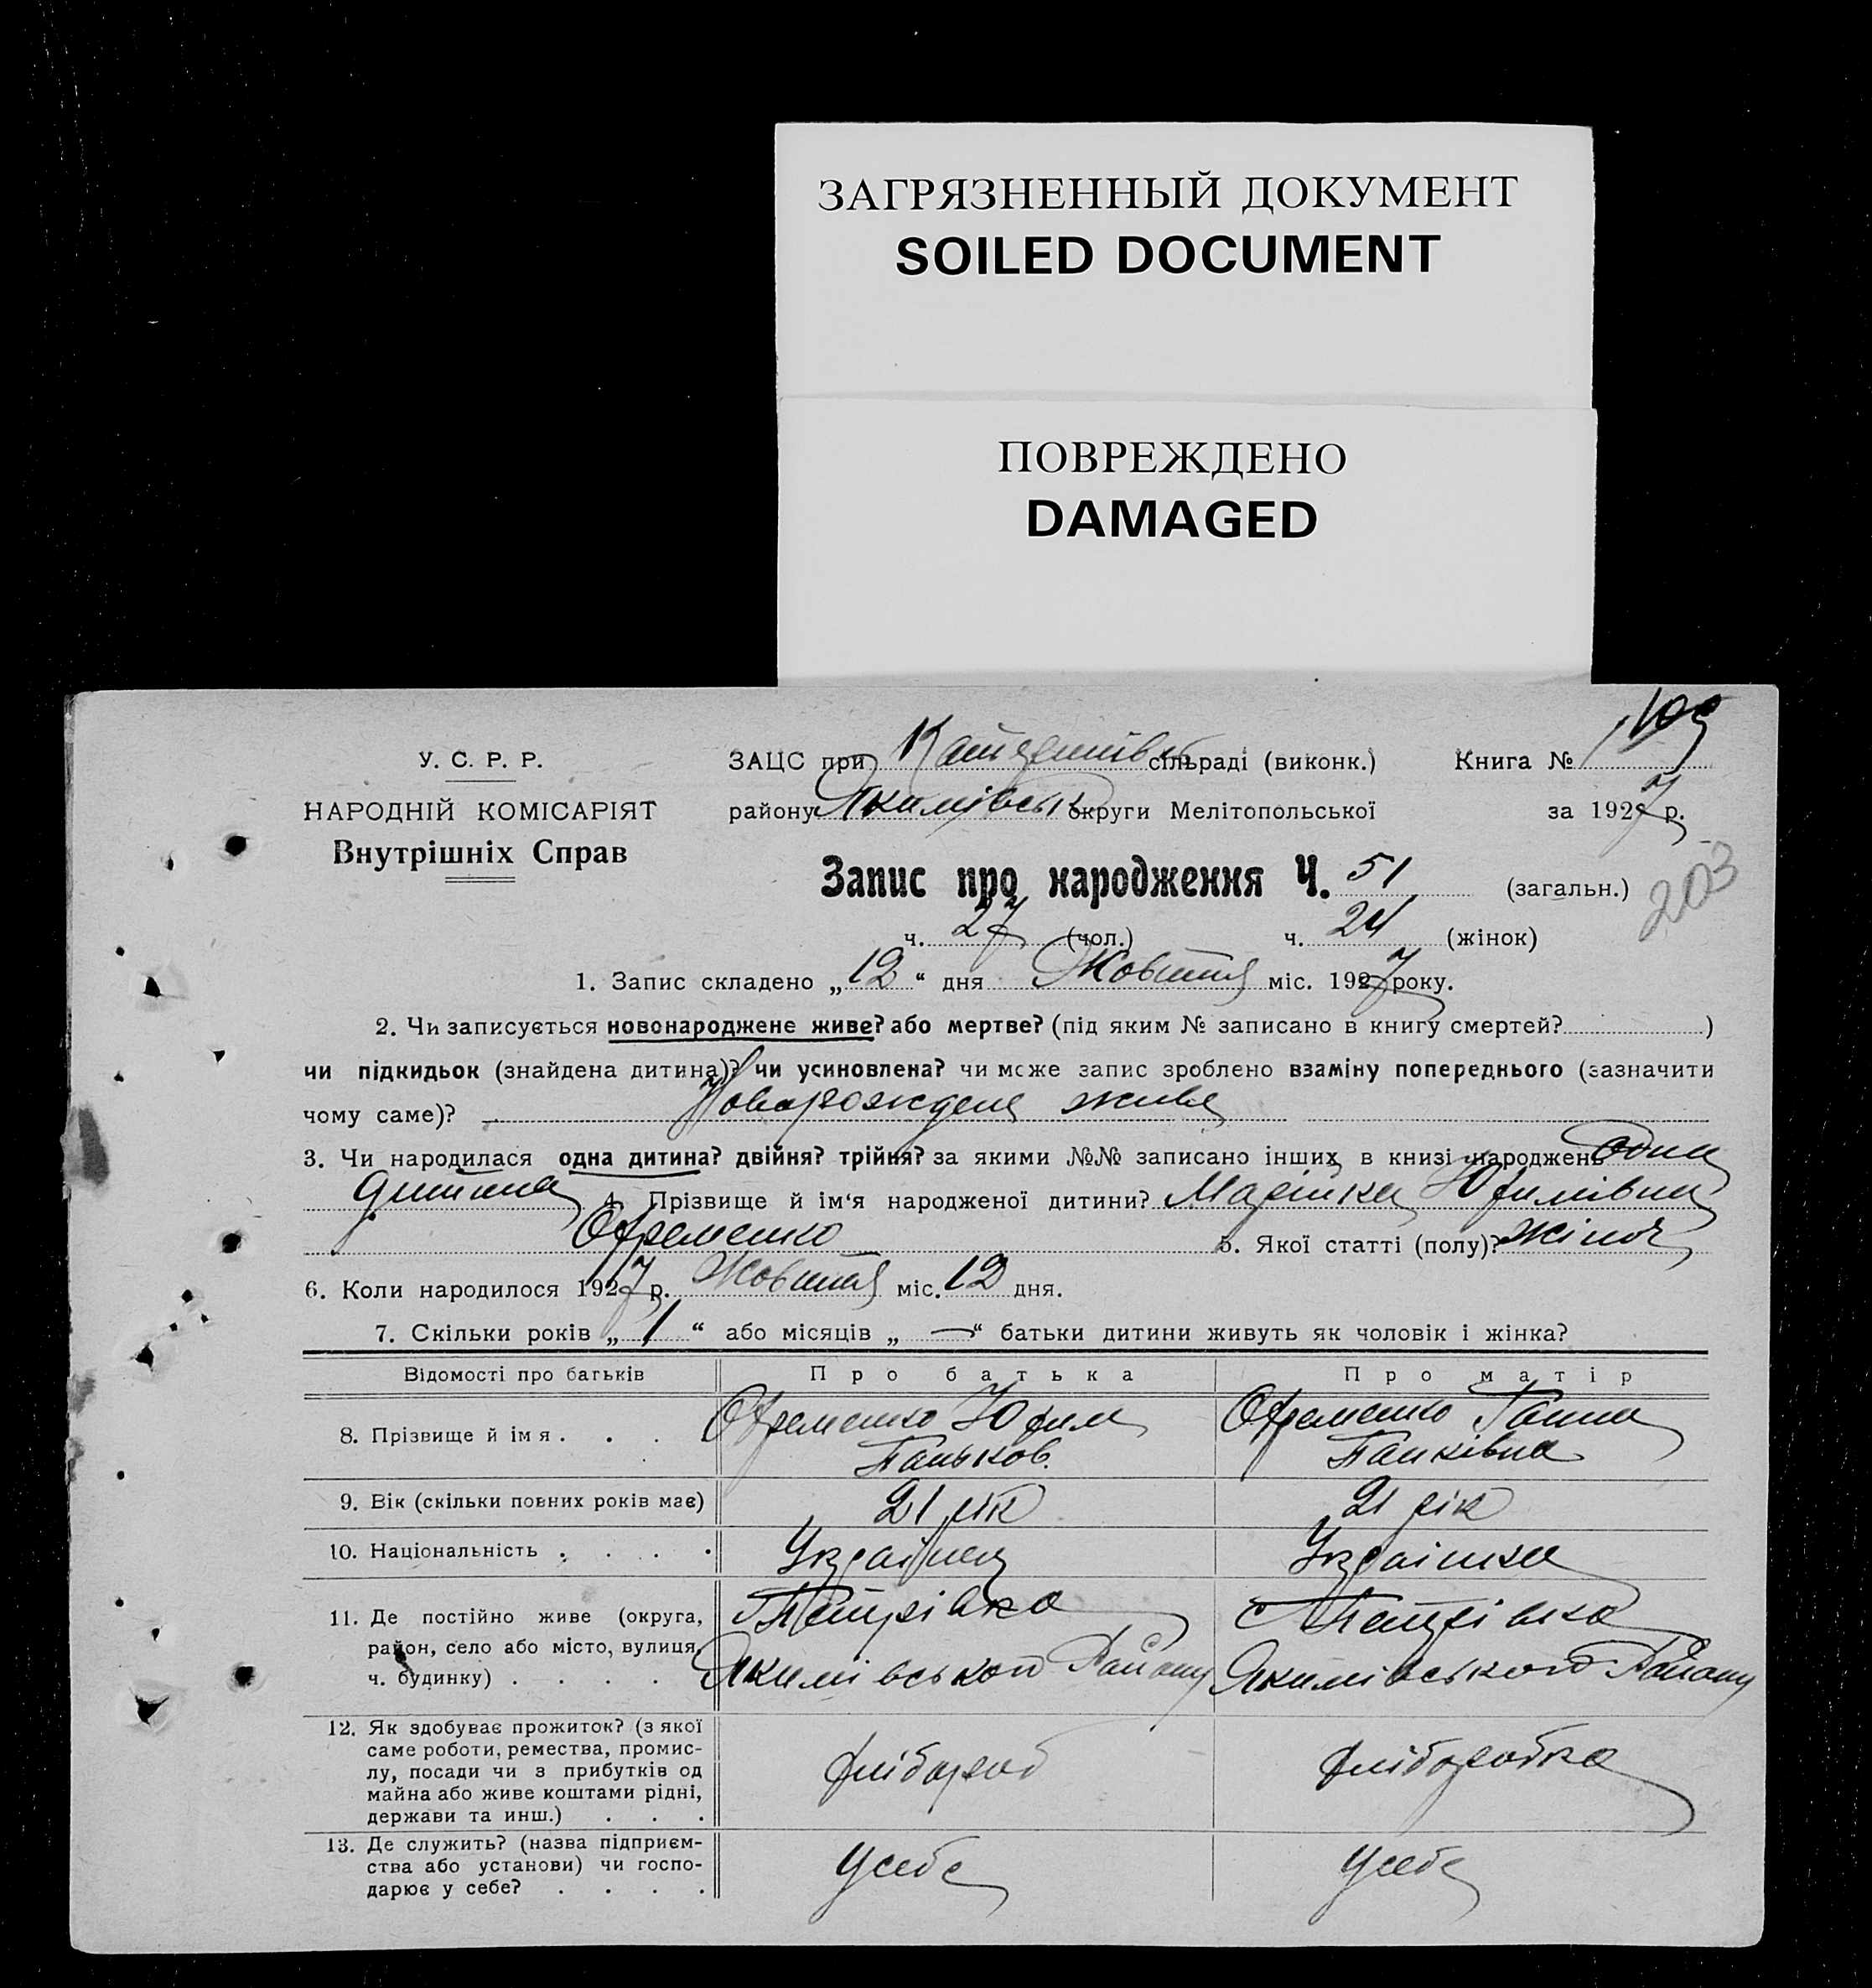 ЗАГРЯЗНЕННЫЙ ДОКУМЕНТ
SOILED DOCUMENT
ПОВРЕЖДЕНО
DAMAGED
У. С. Р. Р.
НАРОДНІЙ КОМІСАРІЯТ
Внутрішніх Справ
ЗАЦС при сільраді (виконк.) Книга №
району Якимівськ округи Мелітопольської за 1927 р.
203
Запис про народження Ч. 51 (загальн.)
ч. 27 (чол.) ч. 24 (жінок)
1. Запис складено „12“ дня Жовтня міс. 1927 року.
2. Чи записується новонароджене живе? або мертве? (під яким № записано в книгу смертей? )
чи підкидьок (знайдена дитина)? чи усиновлена? чи може запис зроблено взаміну попереднього (зазначити
чому саме)? живе
3. Чи народилася одна дитина? двійня? трійня? за якими №№ записано інших в книзі народжень одна
дитина 4. Прізвище й ім'я народженої дитини? Марійка Юфимівна
Офременко 5. Якої статті (полу)? жіноч
6. Коли народилося 1927 р. Жовтня міс. 12 дня.
7. Скільки років „1“ або місяців „—“ батьки дитини живуть як чоловік і жінка?
Відомості про батьків Про батька Про матір
8. Прізвище й імя . . . Офременко Юфим Паньков. Офременко Ганна Панківна
9. Вік (скільки повних років має) 21 рік 21 рік
10. Національність . . . . Українец Українка
11. Де постійно живе (округа,
район, село або місто, вулиця,
ч. будинку) . . . .
Петрівка
Якимівського Району
с Петрівка
Якимівського Району
12. Як здобуває прожиток? (з якої
саме роботи, ремества, промис-
лу, посади чи з прибутків од
майна або живе коштами рідні,
держави та инш.) . . .
хлібороб хліборобка
13. Де служить? (назва підприєм-
ства або установи) чи госпо-
дарює у себе? . . . .
усебе усебе